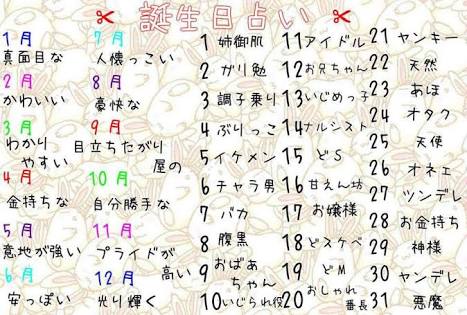 誕生日占い
1月
真面目な
2月
かわいい
3月
わかり
やすい
4月
金持ちな
5月
意地が強い
6月
安っぽい
7月
人懐っこい
8月
豪快な
9月
目立ちたがり
屋の
10月
自分勝手な
11月
プライドが
高い
12月
光り輝く
1 姉御肌
2 ガリ勉
3 調子乗り
4 ぶりっこ
5 イケメン
6 チャラ男
7 バカ
8 腹黒
9 おばあ
ちゃん
10 いじられ役
11 アイドル
12 お兄ちゃん
13 いじめっ子
14 ナルシスト
15 どS
16 甘えん坊
17 お嬢様
18 どスケベ
19 どM
20 おしゃれ
番長
21 ヤンキー
22 天然
23 あほ
24 オタク
25 天使
26 オネエ
27 ツンデレ
28 お金持ち
29 神様
30 ヤンデレ
31 悪魔